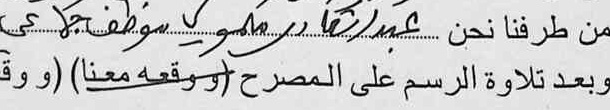 من طرفنا نحن عبد القادر ملموي موظف جماعي
وبعد تلاوة الرسم على المصرح (ووقعه معنا) (و وق